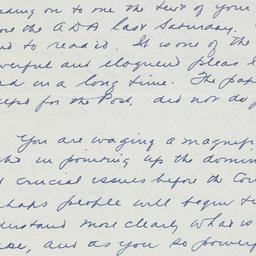 ding on to me the text of your
ore the ADA last Saturday.
d to read it. It is one of the
werful and eloquent pleas I
d in a long time. The pap
cept for the Post, did not do j
You are waging a magnifi
ht in pointing up the domin
t crucial issues before the Con
haps people will begin to
derstand more clearly what is
ke, and as you so powerf